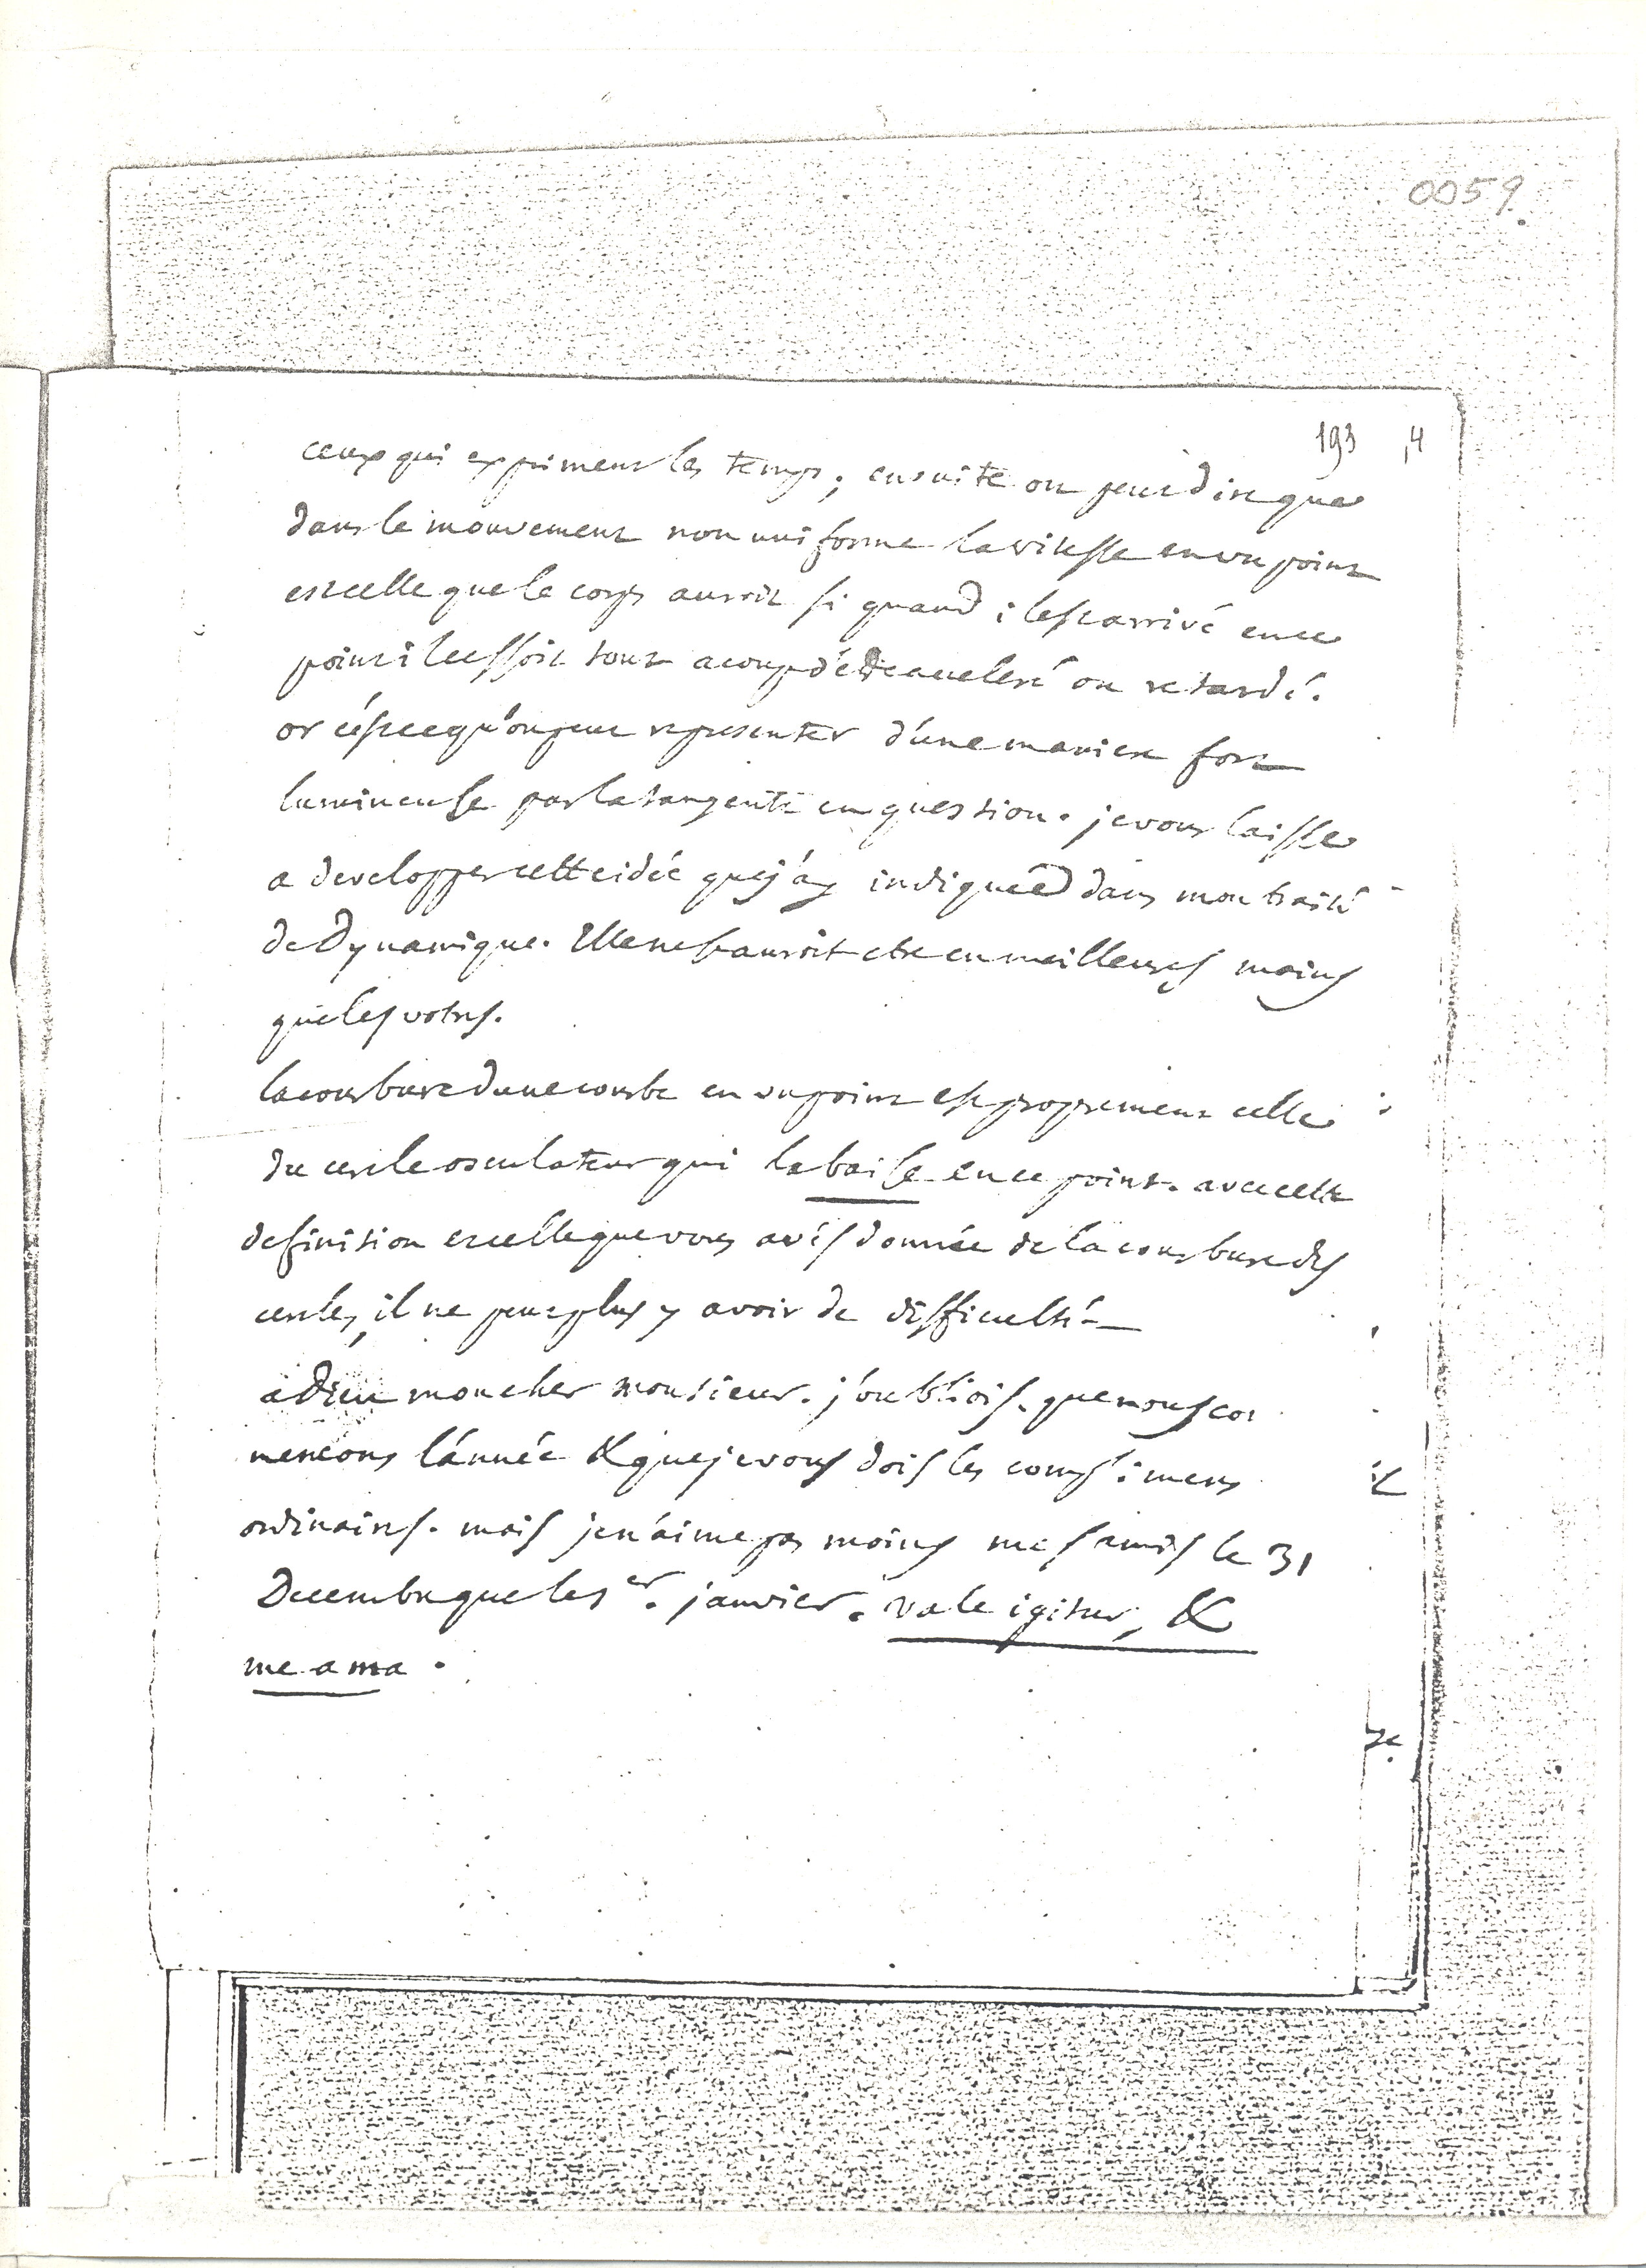 0059.
193 ,4
ceux qui expriment les temps; ensuite on peut dire que
dans le mouvement non uniforme la vitesse en un point
est celle que le corps auroit si quand il est arrivé en ce
point il cessoit tout a coup d'être acceleré ou retardé.
or c'est ce qu'on peut representer d'une maniere fort
lumineuse par la tangente en question. je vous laisse
a developper cette idée que j'ay indiquée dans mon traité
de Dynamique. Elle ne sauroit etre en meilleures mains
que les votres.
la courbure d'une courbe en un point est proprement celle
du cercle osculateur qui la baise en ce point. avec cette
definition et celle que vous avés donnée de la courbure des
cercles, il ne peut plus y avoir de difficulté
adieu mon cher monsieur. j'oubliois que nous com
mencons l'année & que je vous dois les complimens
ordinaires. mais je n'aime pas moins mes amis le 31
Decembre que le 1er. janvier. vale igitur, &
me ama.